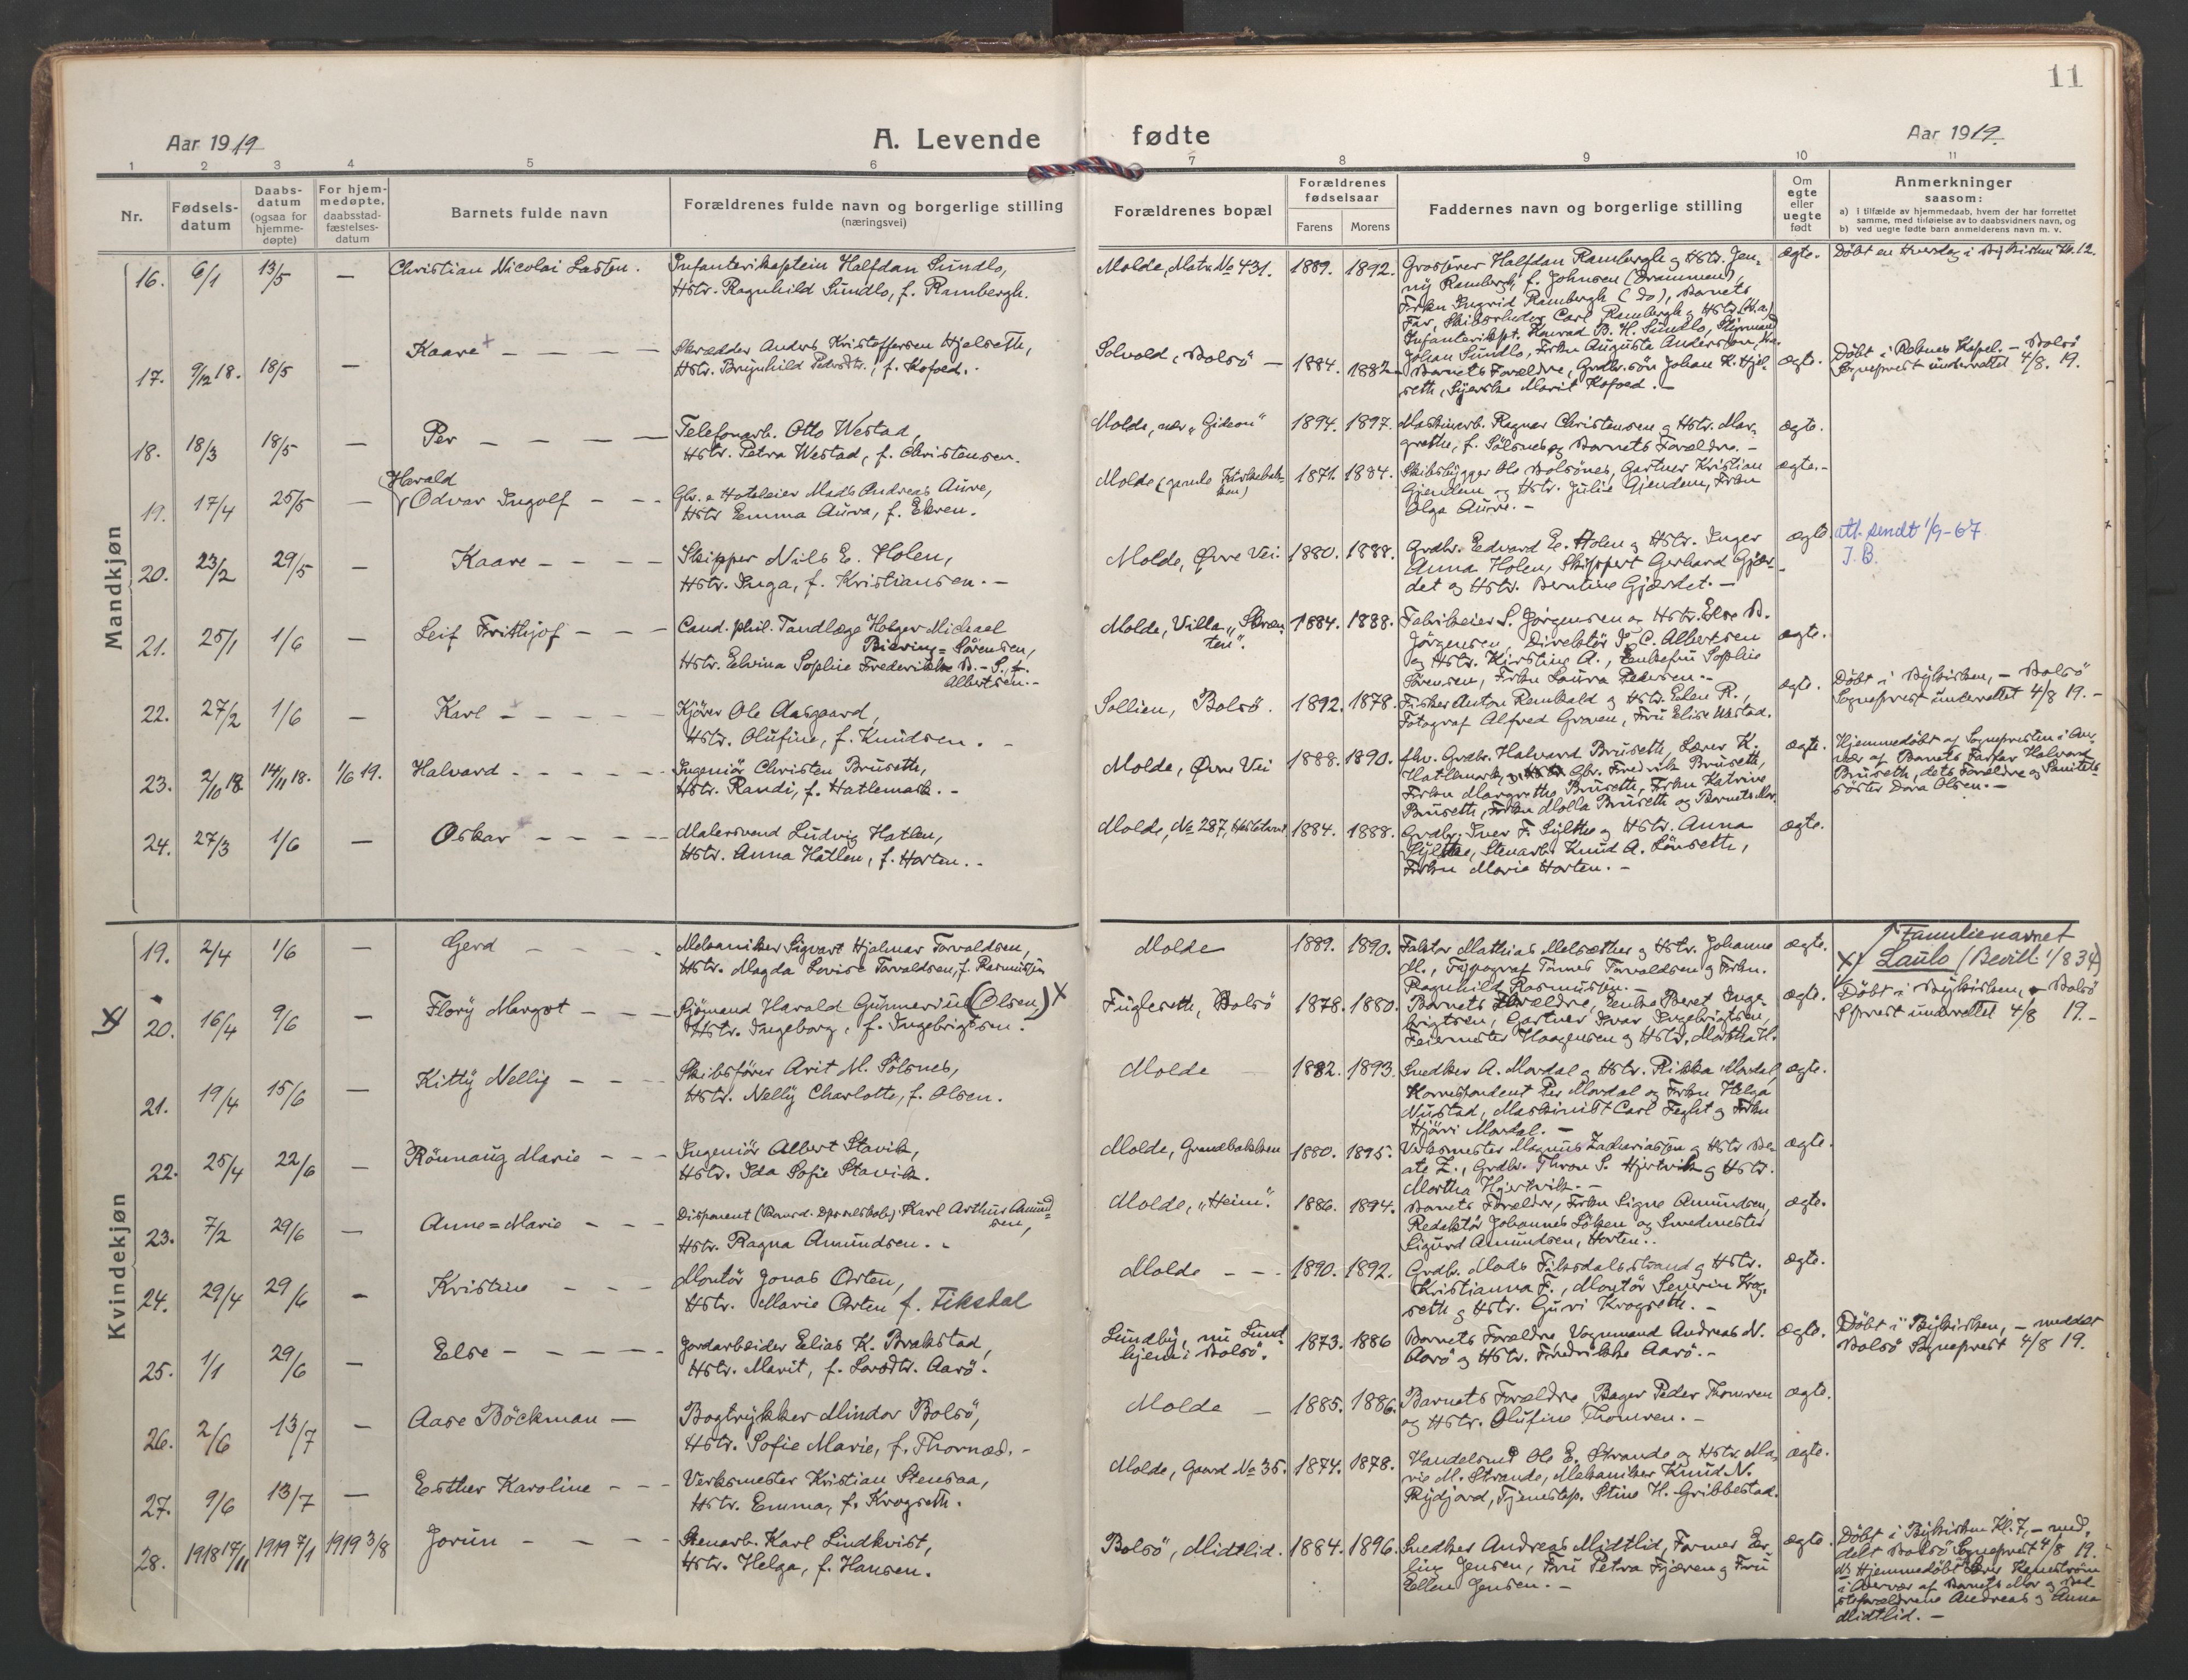 11
Aar 1919
A. Levende fødte
Aar 1919.
1 2 3 4 5 6 7 8 9 10 11
Nr.
Fødselsdatum
Daabsdatum (ogsaa for hjemmedøpte)
For hjemmedøpte, daabsstadfæstelsesdatum
Barnets fulde navn
Forældrenes fulde navn og borgerlige stilling
(næringsvei)
Forældrenes bopæl
Forældrenes fødselsaar
Farens Morens
Faddernes navn og borgerlige stilling
Om egte eller uegte født
Anmerkninger
saasom:
a) i tilfælde av hjemmedaab, hvem der har forrettet
samme, med tilføielse av to daabsvidners navn, og
b) ved uegte fødte barn anmelderens navn m. v.
Mandkjøn
16. 6/1 13/5 — Christian Nicolai Lasten. Infanterikaptein Halfdan Sundlo,
Hstr. Ragnhild Sundlo, f. Rambergh.
Molde, Matr. No 431. 1889. 1892. Grosserer Halfdan Rambergh og Hstr. Jen-
ny Rambergh f. Johnsen (Drammen),
Frkn Ingrid Rambergh (do), Barnets
Far, Skibsreder Carl Rambergh og Hstr.
Infanterikpt. Konrad B. H. Sundlo, Styrmand
Johan Sundlo, Frkn Auguste Anderssen,
ægte. Døbt en Hverdag i Bykirken Kl. 12.
17. 9/12 18. 18/5 — Kaare — — — — Skrædder Anders Kristoffersen Hjelseth,
Hstr. Brynhild Pedersdtr., f. Kofoed.
Solvold, Bolsö — 1884. 1882 Barnets Forældre, Grdbr.sön Johan K. Hjel-
seth, Syerske Marit Kofoed. —
ægte. Døbt i Røbnes Kapel. — Bolsö
Sogneprest underrettet 4/8. 19.
18. 18/3 18/5 — Per — — — — Telefonarb. Otto Westad,
Hstr. Petra Westad, f. Christensen.
Molde, nær "Gideon" 1894. 1897. Maskinarb. Ragnar Christensen og Hstr. Mar-
grethe, f. Sölsnes og Barnets Forældre. —
ægte.
19. 17/4 25/5 — Harald
Odvar Ingolf — — Gbr. & Hoteleier Mads Andreas Aure,
Hstr Emma Aure, f. Ekren.
Molde (gamle 1871. 1884. Skibsbygger Ole Bolsönes, Gartner Kristian
Gjendem og Hstr. Julie Gjendem, Frkn
Olga Aure. —
ægte. —
20. 23/2 29/5 — Kaare — — — — Skipper Nils E. Holen,
Hstr. Inga, f. Kristiansen. —
Molde, Øvre Vei 1880. 1888. Grdbr. Edvard E. Holen og Hstr. Inger
Anna Holen, Skippert Gerhard Gjær-
det og Hstr. Berntine Gjærdet. —
ægte. att. sendt 1/9-67
J. B.
21. 25/1 1/6 — Leif Frithjof — — — Cand. phil. Tandlæge Holger Michael
Bisving= Sörensen,
Hstr. Elvina Sophie Frederikke B. - S. f.
Albertsen. —
Molde, Villa "Skræn-
ten". 1884. 1888. Fabrikeier S. Jörgensen og Hstr. Else B.
Jörgensen, Direktör C. Albertsen
og Hstr. Kirstine A., Enkefru Sophie
Sörensen, Frkn Laura Pedersen. —
ægte.
22. 27/2 1/6 — Karl — — — — Kjörer Ole Aasgaard,
Hstr. Olufine, f. Knudsen. —
Sollien, Bolsö. 1892. 1878. Fisker Anton Rambald og Hstr. Elen R.,
Fotograf Alfred Groven, Fru Elise Westad.
ægte. Døbt i Bykirken, — Bolsö
Sogneprest underrettet 4/8 19. —
23. 2/10 18. 14/11 18. 1/6 19. Halvard — — — — Ingeniör Christen Bruseth,
Hstr. Randi, f. Hatlemark. —
Molde, Øvre Vei 1888. 1890. fhv. Grdbr. Halvard Bruseth, Lærer K.
Hatlemark, Gbr. Fredrik Bruseth,
Frkn Margrethe Bruseth, Frkn Katrine
Bruseth, Frkn Molla Bruseth og Barnets Mor.
ægte. Hjemmedøbt af Sognepresten i Over-
vær af Barnets Farfar Halvard
Bruseth, dets Forældre og Sanitets-
søster Dora Olsen. —
24. 27/3 1/6 — Oskar — — — — Malersvend Ludvig Hatlen,
Hstr. Anna Hatlen, f. Horten. —
Molde, No 287, 1884. 1888. Grdbr. Iver F. Sylthe og Hstr. Anna
Sylthe, Stenarb. Knud A. Lönseth,
Frkn Marie Horten. —
ægte.
Kvindekjøn
19. 2/4 1/6 — Gerd — — — — Mekaniker Sigvart Hjalmar Torvaldsen,
Hstr. Magda Lovise Torvaldsen, f. Rasmussen
Molde 1889. 1890. Faktor Mathias Melsæther og Hstr. Johanne
M., Typograf Tömes Torvaldsen og Frkn.
Ragnhild Rasmussen. —
ægte. Familienavnet
X) Laulo (Bevill. 1/8 34)
X
20. 16/4 9/6 — Flory Margot — — — Sjömand Harald Gunnerius (Olsen) X
Hstr. Ingeborg, f. Ingebrigtsen.
Fuglseth, Bolsö 1878. 1880. Barnets Forældre, Enke Beret Inge-
brigtsen, Gartner Ivar Ingebrigtsen,
Feiermester Haagensen og Hstr. Martha H.
ægte. Døbt i Bykirken, — Bolsö
Sprest underrettet 4/8 19. —
21. 19/4 15/6 — Kitty Nelly — — — Skibsförer Arit M. Sölsnes,
Hstr. Nelly Charlotte, f. Olsen.
Molde — 1882. 1893. Snedker A. Mordal og Hstr. Rikka Mordal,
Korrespondent Per Mordal og Frkn Helga
Nustad, Maskinist Carl Feght og Frkn
Hjövi Mordal. —
ægte.
22. 25/4 22/6 — Rönnaug Marie — — — Ingeniör Albert Stavik,
Hstr. Ida Sofie Stavik.
Molde, Grandbakken 1880. 1895. Verksmester Magnus Zachariassen og Hstr Be-
ate Z., Grdbr. Thron S. Hjertvik og Hstr.
Martha Hjertvik. —
ægte.
23. 7/2 29/6 — Anne=Marie — — — Disponent Karl Arthur Amund-
sen,
Hstr. Ragna Amundsen. —
Molde, "Heim". 1886. 1894. Barnets Forældre, Frkn Signe Amundsen,
Redaktör Johannes Löken og Smedmester
Sigurd Amundsen, Horten.
ægte.
24. 29/4 29/6 — Kristine — — — Montör Jonas Orten,
Hstr. Marie Orten f. Fiksdal
Molde — — 1890. 1892. Grdbr. Mads Fiksdalsstrand og Hstr.
Kristianna F., Montör Severin Krog-
seth og Hstr. Guri Krogseth. —
ægte.
25. 1/1 29/6 — Else — — — — Jordarbeider Elias K. Brakstad,
Hstr. Marit, f. Larsdtr. Aarö.
Lundby, nu Lund-
hjem i Bolsö. 1873. 1886 Barnets Forældre, Vognmand Andreas N.
Aarö og Hstr. Fredrikke Aarö. —
ægte. Døbt i Bykirken, — meddelt
Bolsö Sogneprest 4/8 19.
26. 2/6 13/7 — Aase Böckman — Bogtrykker Mindor Bolsö,
Hstr. Sofie Marie, f. Thornæs. —
Molde — 1885. 1886. Barnets Forældre, Bager Peder Thomren
og Hstr. Olufine Thomren. —
ægte.
27. 9/6 13/7 — Esther Karoline — — Verksmester Kristian Stensaa,
Hstr. Emma, f. Krogseth.
Molde, Gaard No 35. 1874. 1878. Handelsmd Ole E. Strande og Hstr. Ma-
rie M. Strande, Mekaniker Knud N.
Rydjord, Tjenestep. Stine H. Gribbestad.
ægte.
28. 1918 17/11 1919 7/1 1919 3/8 Jorun — — — Stenarb. Karl Lindkvist,
Hstr. Helga, f. Hansen.
Bolsö, Midtlid. 1884. 1896. Snedker Andreas Midtlid, Former Er-
ling Jensen, Fru Petra Fjæren og Fru
Ellen Jensen. —
ægte. Døbt i Bykirken Kl. 7, — med-
delt Bolsö Sogneprest 4/8 19.
Hjemmedøbt
i Overvær af Barnets Mor og Bed-
steforældrene Andreas og Anna
Midtlid. —